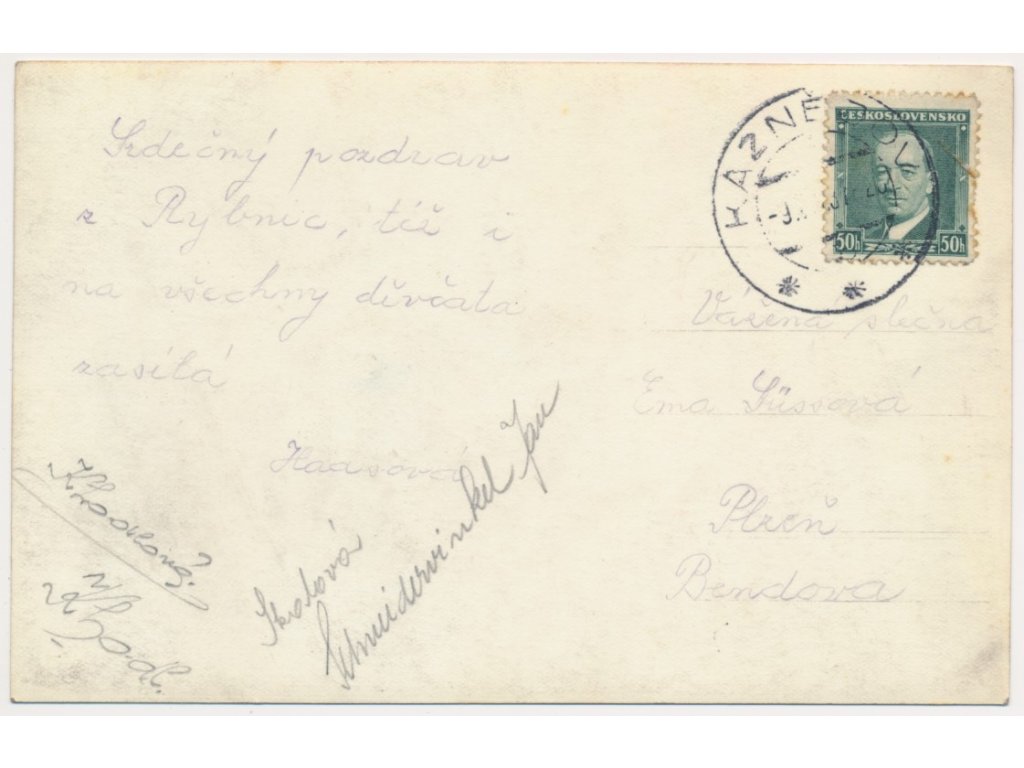 Srdečný pozdrav
z Rybnic, též i
na všechny děvčata
zasílá
Haasová
Schneidervinkel Jan
KAZNĚJOV
ČESKOSLOVENSKO
50h 50h
Vážená slečna
Ema Süssová
Plzeň
Bendova